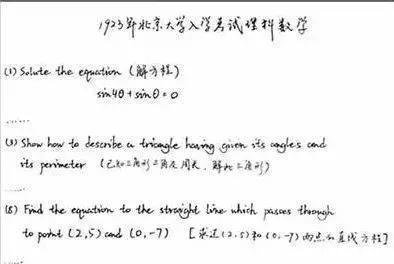 1923年北京大学入学考试理科数学
(1) Solute the equation (解方程)
sin4θ+sinθ=0
......
(3) Show how to describe a triangle having given its angles and
its perimeter (已知三角形三角及周长,解此三角形)
......
(8) Find the equation to the straight line which passes through
to point (2,5) and (0,-7) [求过(2.5)和(0.-7)两点的直线方程]
......